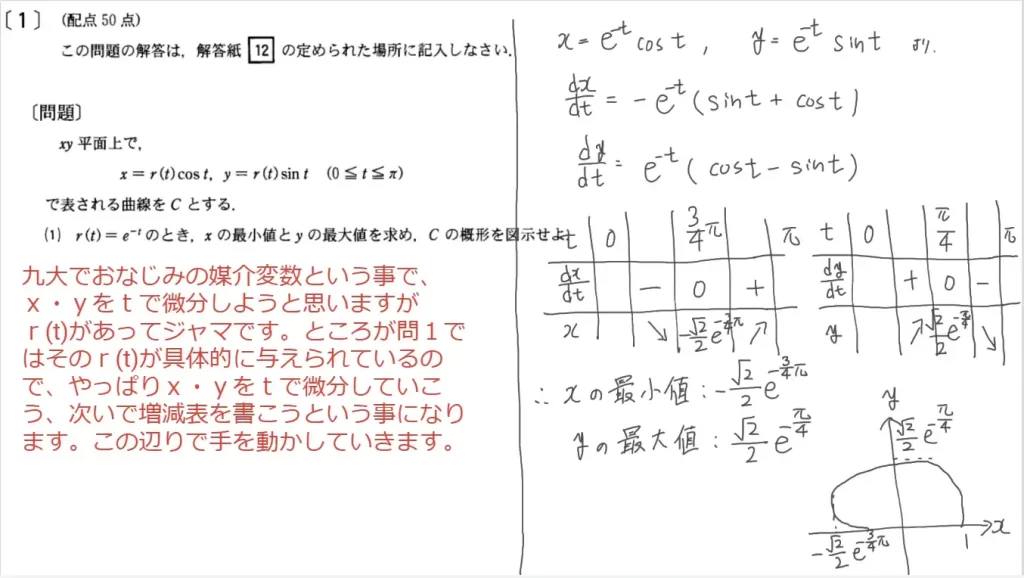 〔1〕 (配点 50 点)
この問題の解答は, 解答紙 12 の定められた場所に記入しなさい.
〔問題〕
xy 平面上で,
x = r(t)cos t, y = r(t)sin t (0 ≦ t ≦ π)
で表される曲線を C とする.
(1) r(t) = e^{-t} のとき, x の最小値と y の最大値を求め, C の概形を図示せよ
九大でおなじみの媒介変数という事で、
x・yをtで微分しようと思いますが
r(t)があってジャマです。ところが問1で
はそのr(t)が具体的に与えられているの
で、やっぱりx・yをtで微分していこ
う、次いで増減表を書こうという事になり
ます。この辺りで手を動かしていきます。
x = e^{-t} cos t , y = e^{-t} sin t より.
dx/dt = -e^{-t}(sin t + cos t)
dy/dt = e^{-t}(cos t - sin t)
t 0 3/4π π
dx/dt - 0 +
x ↘ -√2/2 e^{-3/4π} ↗
t 0 π/4 π
dy/dt + 0 -
y ↗ √2/2 e^{-3/4} ↘
∴ xの最小値: -√2/2 e^{-3/4π}
yの最大値: √2/2 e^{-π/4}
y
√2/2 e^{-π/4}
x
1
-√2/2 e^{-3/4π}